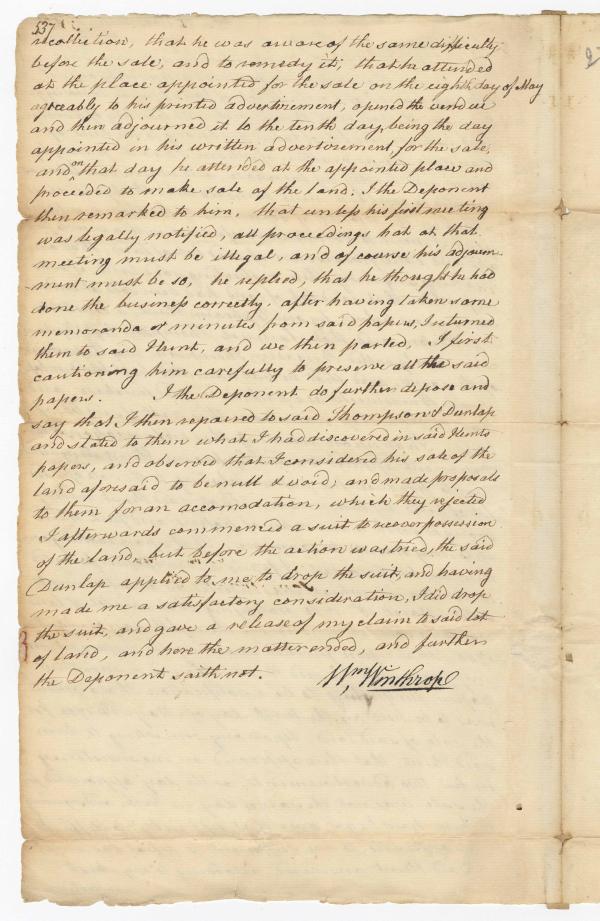 537
recollection, that he was aware of the same difficulty
before the sale, and to remedy it, that he attended
at the place appointed for the sale on the eighth day of May
agreeably to his printed advertizement, opened the vendue
and then adjourned it to the tenth day, being the day
appointed in his written advertizement, for the sale,
and on that day he attended at the appointed place and
proceeded to make sale of the land; I the Deponent
then remarked to him, that unless his first meeting
was legally notified, all proceedings had at that
meeting must be illegal, and of course his adjourn-
ment must be so, he replied, that he thought he had
done the business correctly, after having taken some
memoranda or minutes from said papers, I returned
them to said Hunt, and we then parted, I first
cautioning him carefully to preserve all the said
papers. I the Deponent do further depose and
say that I then repaired to said Thompson & Dunlap
and stated to them what I had discovered in said Hunts
papers, and observed that I considered his sale of the
land aforesaid to be null & void, and made proposals
to them for an accomodation, which they rejected
I afterwards commenced a suit to recover possession
of the land, but before the action was tried, the said
Dunlap applied to me, to drop the suit, and having
made me a satisfactory consideration, I did drop
the suit, and gave a release of my claim to said lot
of land, and here the matter ended, and further
the Deponent saith not. Wm, Winthrop